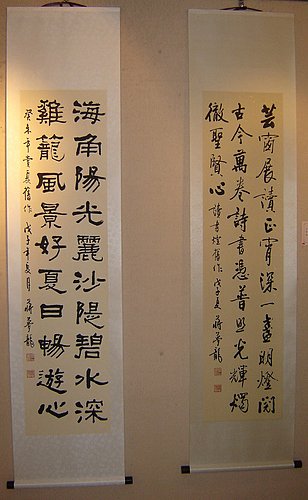 芸窗展讀正宵深一盞明燈閱
古今萬卷詩書憑普照光輝燭
徹聖賢心 讀書燈舊作 戊子夏 蔣夢龍
海角陽光麗沙隄碧水深
雞籠風景好夏日暢遊心
癸未年舊作 戊子年夏月 蔣夢龍